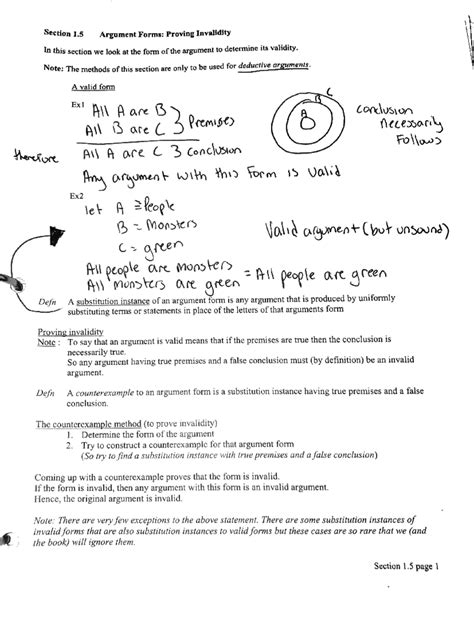 Section 1.5 Argument Forms: Proving Invalidity
In this section we look at the form of the argument to determine its validity.
Note: The methods of this section are only to be used for deductive arguments.
A valid form
Ex1 All A are B
All B are C } Premises
therefore All A are C } Conclusion
A B C
Conclusion
Necessarily
Follows
Any argument with this Form is Valid
Ex2
let A = People
B = Monsters
C = green
Valid argument (but unsound)
All people are monsters
All monsters are green = All people are green
Defn A substitution instance of an argument form is any argument that is produced by uniformly
substituting terms or statements in place of the letters of that arguments form
Proving invalidity
Note : To say that an argument is valid means that if the premises are true then the conclusion is
necessarily true.
So any argument having true premises and a false conclusion must (by definition) be an invalid
argument.
Defn A counterexample to an argument form is a substitution instance having true premises and a false
conclusion.
The counterexample method (to prove invalidity)
1. Determine the form of the argument
2. Try to construct a counterexample for that argument form
(So try to find a substitution instance with true premises and a false conclusion)
Coming up with a counterexample proves that the form is invalid.
If the form is invalid, then any argument with this form is an invalid argument.
Hence, the original argument is invalid.
Note: There are very few exceptions to the above statement. There are some substitution instances of
invalid forms that are also substitution instances to valid forms but these cases are so rare that we (and
the book) will ignore them.
Section 1.5 page 1